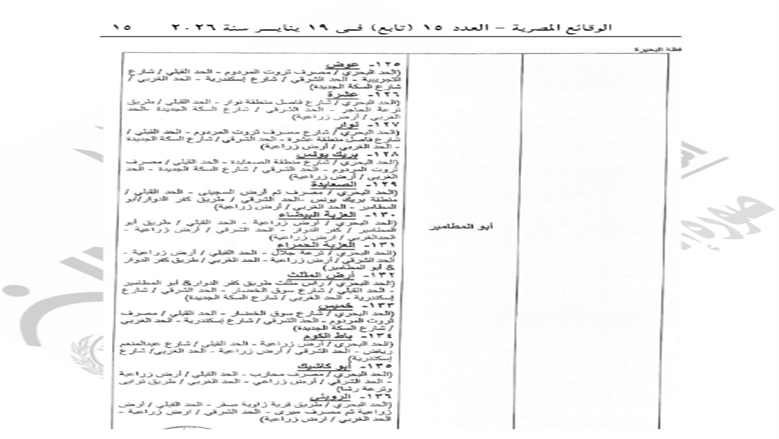 الوقائع المصرية – العدد ١٥ (تابع) فى ١٩ يناير سنة ٢٠٢٦ ١٥
فظة البحيرة
أبو المطامير
١٢٥- عوض
(الحد البحري / مصرف ثروت المردوم - الحد القبلي / شارع
التجريبية - الحد الشرقي / شارع إسكندرية - الحد الغربي /
شارع السكة الجديدة)
١٢٦- عشرة
(الحد البحري / شارع فاصل منطقة نوار - الحد القبلي / طريق
ترعة الحاجر - الحد الشرقي / شارع السكة الجديدة -الحد
الغربي / أرض زراعية)
١٢٧- نوار
(الحد البحري / شارع مصرف ثروت المردوم - الحد القبلي /
شارع فاصل منطقة عشرة - الحد الشرقي / شارع السكة الجديدة
- الحد الغربي / أرض زراعية)
١٢٨- بريك يونس
(الحد البحري / شارع منطقة الصعايدة - الحد القبلي / مصرف
ثروت المردوم - الحد الشرقي / شارع السكة الجديدة - الحد
الغربي / أرض زراعية)
١٢٩- الصعايدة
(الحد البحري / مصرف ثم أرض السجيني - الحد القبلي /
منطقة بريك يونس -الحد الشرقي / طريق كفر الدوار/أبو
المطامير - الحد الغربي / أرض زراعية)
١٣٠- العزبة البيضاء
(الحد البحري / أرض زراعية - الحد القبلي / طريق أبو
المطامير / كفر الدوار - الحد الشرقي / أرض زراعية -
الحدالغربي / أرض زراعية)
١٣١- العزبة الحمراء
(الحد البحري / ترعة جلال - الحد القبلي / أرض زراعية -
الحد الشرقي / أرض زراعية - الحد الغربي / طريق كفر الدوار
& أبو المطامير)
١٣٢- أرض المثلث
(الحد البحري / رأس مثلث طريق كفر الدوار& أبو المطامير
- الحد القبلي / شارع سوق الخضار - الحد الشرقي / شارع
إسكندرية - الحد الغربي / شارع السكة الجديدة)
١٣٣- خميس
(الحد البحري / شارع سوق الخضار - الحد القبلي / مصرف
ثروت المردوم - الحد الشرقي / شارع إسكندرية - الحد الغربي
/ شارع السكة الجديدة)
١٣٤- باط الكوم
(الحد البحري / أرض زراعية - الحد القبلي / شارع عبدالمنعم
رياض - الحد الشرقي / أرض زراعية - الحد الغربي/ شارع
إسكندرية)
١٣٥- أبو كاشيك
(الحد البحري / مصرف محارب - الحد القبلي / أرض زراعية
- الحد الشرقي / أرض زراعي - الحد الغربي / طريق ترابي
وترعة رشا)
١٣٦- الرويني
(الحد البحري / طريق قرية زاوية صقر - الحد القبلي / أرض
زراعية ثم مصرف ميرى - الحد الشرقي / أرض زراعية -
الحد الغربي / أرض زراعية)